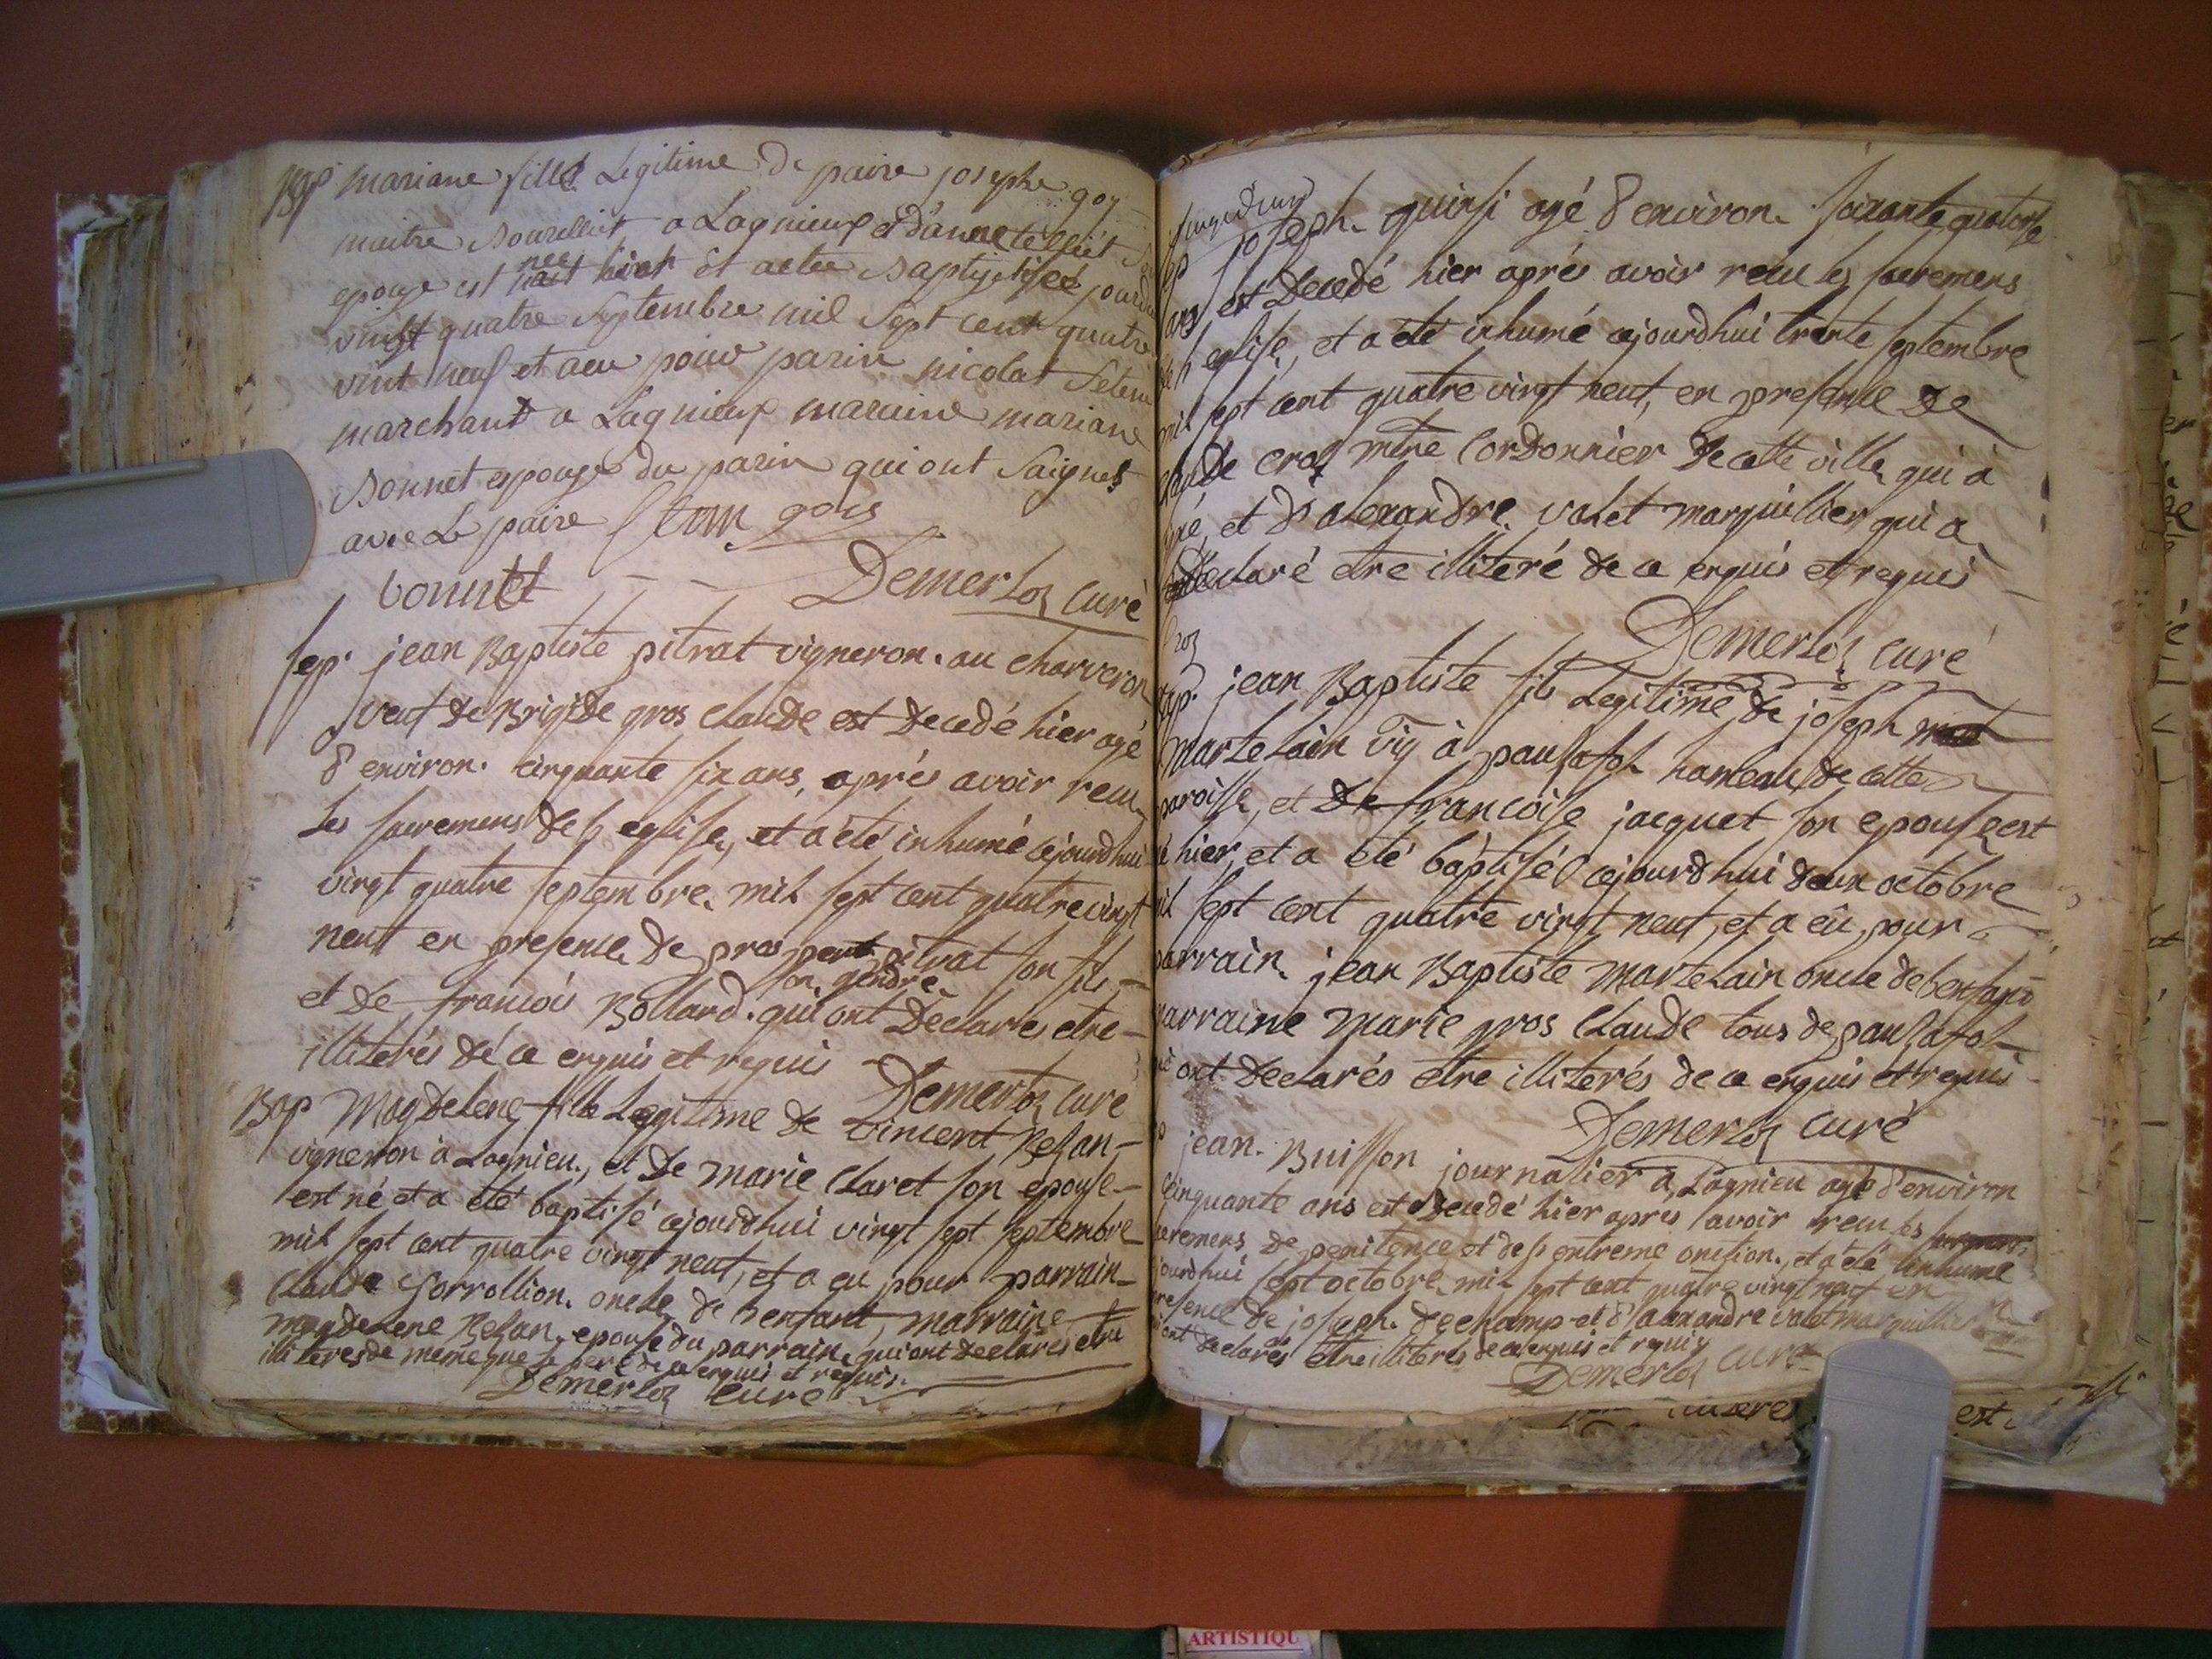 Bap mariane fille Legitime de paire josephe goy
maitre Bourellier a Lagnieux et d'anne
epouze est nee hier et aetee Baptijee
vingt quatre Septembre mil Sept cent quatre
vint neuf et aeu pour parin nicolas
marchant a Lagnieux maraine mariane
Bonnet epouze du parin qui ont Saignes
avec Le paire gois
bonnet Demerloz curé
sep. jean Baptiste pitrat vigneron. au charveron
veuf de Brigide gros claude est decedé hier agé
d'environ. cinquante six ans, aprés avoir recu
Les sacremens de l'eglise, et a été inhumé cejourdhui
vingt quatre septembre. mil sept cent quatre vingt
neuf en presence de pitrat son fils
son gendre
et de francois Bollard. qui ont declarés etre
illiterés de ce enquis et requis
Demerloz curé
Bap Magdelene fille Legitime de vincent Besan
vigneron à Lagnieu., et de marie Claret son epouse
est né et a été baptisé cejourdhui vingt sept septembre
mil sept cent quatre vingt neuf, et a eu pour parrain
Claude Gorrollion. oncle de l'enfant, marraine
magdelene Besan. epouse du parrain. qui ont declarés etre
illiteres de meme que le pere de ce enquis et requis.
Demerloz curé
joseph. quinsi agé d'environ. soixante quatorse
ans est decedé hier aprés avoir recu les sacremens
de l'eglise, et a été inhumé cejourdhui trente septembre
mil sept cent quatre vingt neuf, en presence de
claude croz mtre Cordonnier de cette ville, qui à
signé, et d'alexandre. valet marguillier qui a
declaré etre illiteré de ce enquis et requis
croz Demerloz curé
bap. jean Baptiste fils Legitime de joseph
martelain vig à pausafol hameau de cette
paroisse, et de francoise jacquet son epouse est
né hier, et a été baptisé cejourdhui deux octobre
mil sept cent quatre vingt neuf, et a eû pour
parrain. jean Baptiste martelain oncle de l'enfant
marraine marie gros Claude tous de pausafol
qui ont declarés etre illiterés de ce enquis et requis
Demerloz curé
jean. Buisson journalier a Lagnieu agé d'environ
cinquante ans est decedé hier apres avoir recu les
sacremens de penitence et de l'extreme onction., et a été inhumé
cejourdhui sept octobre. mil sept cent quatre vingt neuf en
presence de joseph. dechamp et d'alexandre valet marguillier
qui ont declarés etre illiteres de ce enquis et requis
Demerloz curé
est
ARTISTIQU